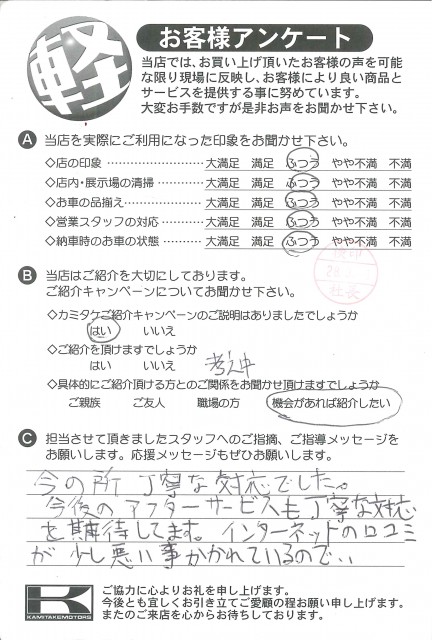 軽
お客様アンケート
当店では、お買い上げ頂いたお客様の声を可能
な限り現場に反映し、お客様により良い商品と
サービスを提供する事に努めています。
大変お手数ですが是非お声をお聞かせ下さい。
A 当店を実際にご利用になった印象をお聞かせ下さい。
◇店の印象 ………………… 大満足 満足 ふつう やや不満 不満
◇店内・展示場の清掃 ………… 大満足 満足 ふつう やや不満 不満
◇お車の品揃え ……………… 大満足 満足 ふつう やや不満 不満
◇営業スタッフの対応 ………… 大満足 満足 ふつう やや不満 不満
◇納車時のお車の状態 ………… 大満足 満足 ふつう やや不満 不満
B 当店はご紹介を大切にしております。
ご紹介キャンペーンについてお聞かせ下さい。
社長
◇カミタケご紹介キャンペーンのご説明はありましたでしょうか
はい いいえ
◇ご紹介を頂けますでしょうか
はい いいえ 考え中
◇具体的にご紹介頂ける方とのご関係をお聞かせ頂けますでしょうか
ご親族 ご友人 職場の方 機会があれば紹介したい
C 担当させて頂きましたスタッフへのご指摘、ご指導メッセージを
お願いします。応援メッセージもぜひお願いします。
今の所 丁寧な対応でした。
今後のアフターサービスも丁寧な対応
を期待してます。インターネットの口コミ
が少し悪い事かかれているので‥
K
KAMITAKEMOTORS
ご協力に心よりお礼を申し上げます。
今後とも宜しくお引き立てご愛顧の程お願い申し上げます。
またのご来店を心からお待ちしております。